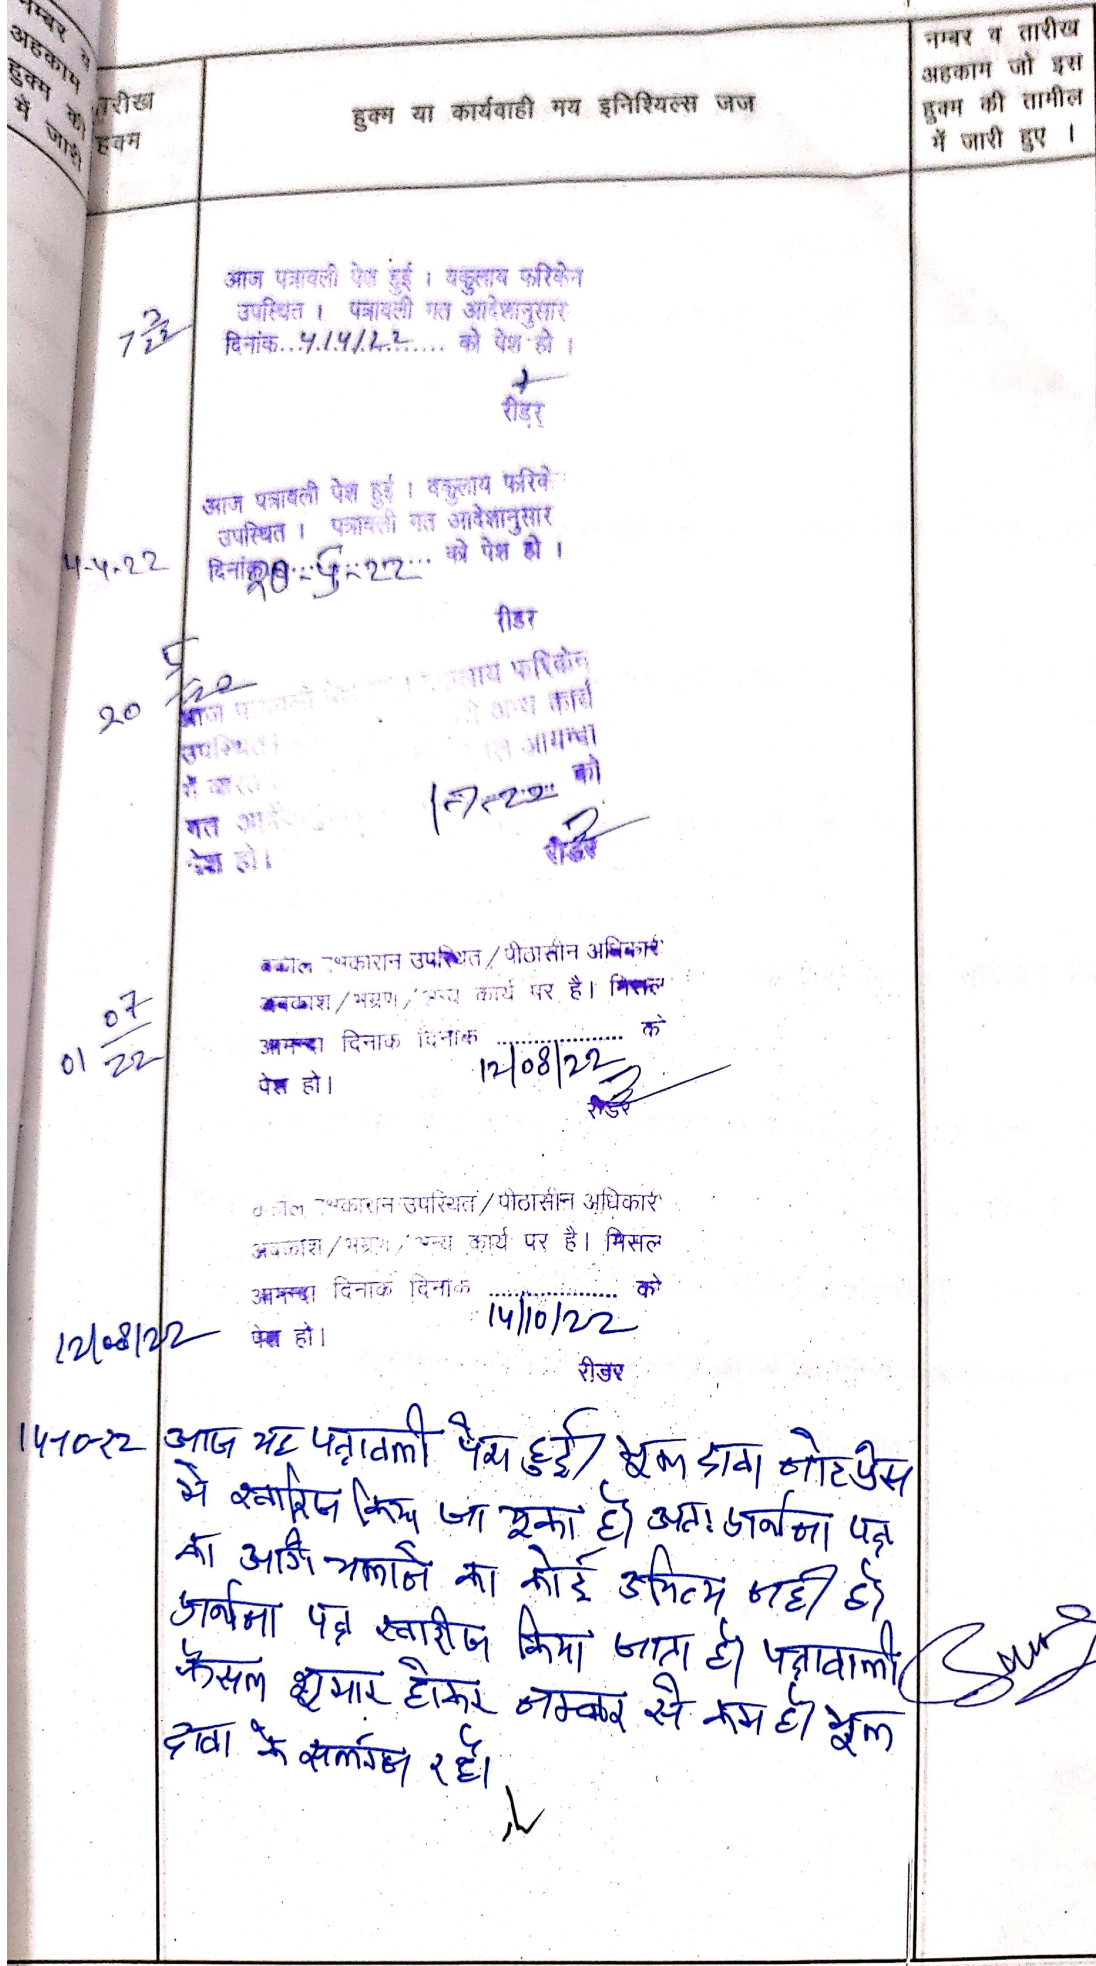 नम्बर व
अहकाम
हुक्म की
में जारी
तारीख
हुक्म
हुक्म या कार्यवाही मय इनिशियल्स जज
नम्बर व तारीख
अहकाम जो इस
हुक्म की तामील
में जारी हुए ।
आज पत्रावली पेश हुई । वकुलाय फरिकेन
उपस्थित । पत्रावली गत आदेशानुसार
7 3/22
दिनांक...4/4/22...... को पेश हो ।
रीडर
आज पत्रावली पेश हुई । वकुलाय फरिके
उपस्थित । पत्रावली गत आदेशानुसार
4-4-22
दिनांक 20-5-22 को पेश हो ।
रीडर
20 5/22
आज फरिकेन
उपस्थित। अन्य कार्य
में
गत 1-7-22 को
पेश हो।
रीडर
वकील उपस्थित/पीठासीन अधिकार
अवकाश/भम्रण/अन्य कार्य पर है। मिसल
01 07/22
आमन्दा दिनाक दिनाक .................. को
12/08/22
पेश हो।
रीडर
उपस्थित/पीठासीन अधिकार
अवकाश/भम्रण/अन्य कार्य पर है। मिसल
आमन्दा दिनाक दिनाक .................. को
14/10/22
12/08/22
पेश हो।
रीडर
14-10-22
आज यह पत्रावली पेश हुई। मूल दावा नोट प्रेस
मे खारिज किया जा चुका है। अतः प्रार्थना पत्र
को आगे चलाने का कोई औचित्य नही है।
प्रार्थना पत्र खारीज किया जाता है। पत्रावाली
फैसल शुमार होकर नम्बर से कम हो मूल
दावा के सलंग्न रहे।